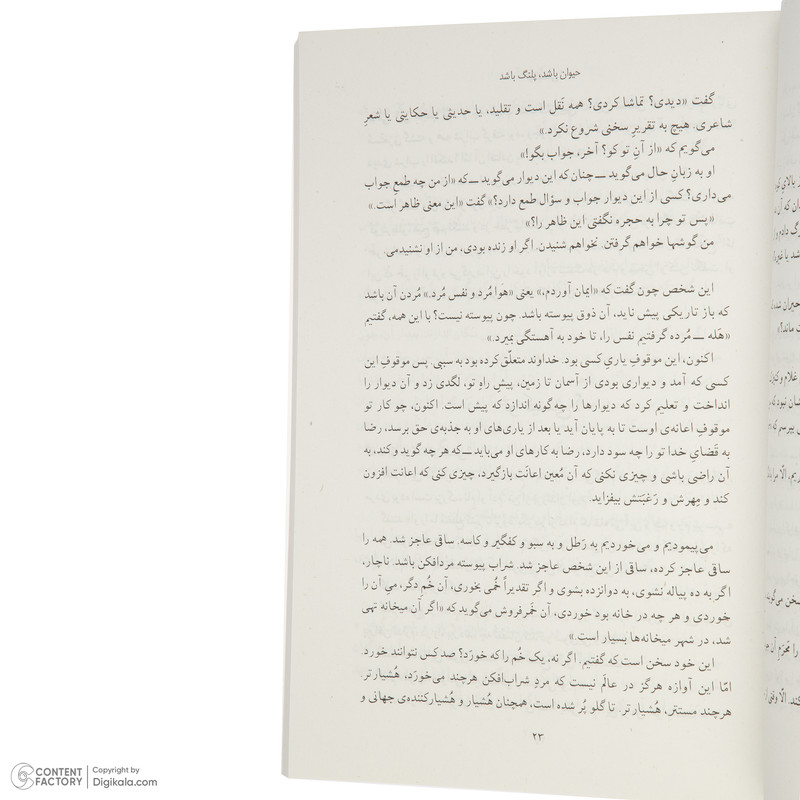 حیوان باشد، پلنگ باشد
گفت «دیدی؟ تماشا کردی؟ همه نَقل است و تقلید، یا حدیثی یا حکایتی یا شعرِ
شاعری. هیچ به تقریرِ سخنی شروع نکرد.»
می‌گویم که «از آنِ تو کو؟ آخر، جواب بگو!»
او به زبانِ حال می‌گوید — چنان‌که این دیوار می‌گوید — که «از من چه طمعِ جواب
می‌داری؟ کسی از این دیوار جواب و سؤال طمع دارد؟» گفت «این معنی ظاهر است.»
«پس تو چرا به حجره نگفتی این ظاهر را؟»
من گوشها خواهم گرفتن. نخواهم شنیدن. اگر او زنده بودی، من از او نشنیدمی.
این شخص چون گفت که «ایمان آوردم،» یعنی «هوا مُرد و نفس مُرد.» مُردن آن باشد
که باز تاریکی پیش ناید، آن ذوق پیوسته باشد. چون پیوسته نیست؟ با این همه، گفتیم
«هَله — مُرده گرفتیم نفس را، تا خود به آهستگی بمیرد.»
اکنون، این موقوفِ یاریِ کسی بود. خداوند متعلّق کرده بود به سببی. پس موقوفِ این
کسی که آمد و دیواری بودی از آسمان تا زمین، پیشِ راهِ تو، لگدی زد و آن دیوار را
انداخت و تعلیم کرد که دیوارها را چه‌گونه اندازد که پیش است. اکنون، چو کار تو
موقوفِ اعانه‌ی اوست تا به پایان آید یا بعد از یاری‌های او به جذبه‌ی حق برسد، رضا
به قَضایِ خدا تو را چه سود دارد، رضا به کارهای او می‌باید — که هر چه گوید و کند، به
آن راضی باشی و چیزی نکنی که آن مُعین اعانَت بازگیرد، چیزی کنی که اعانت افزون
کند و مِهرش و رَغبَتش بیفزاید.
می‌پیمودیم و می‌خوردیم به رَطل و به سبو و کفگیر و کاسه. ساقی عاجز شد. همه را
ساقی عاجز کرده، ساقی از این شخص عاجز شد. شراب پیوسته مردافکن باشد. ناچار،
اگر به ده پیاله نشوی، به دوانزده بشوی و اگر تقدیراً خُمی بخوری، آن خُمِ دگر، میِ آن را
خوردی و هر چه در خانه بود خوردی، آن خَمرفروش می‌گوید که «اگر آن میخانه تهی
شد، در شهر میخانه‌ها بسیار است.»
این خود سخن است که گفتیم. اگر نه، یک خُم را که خورَد؟ صد کس نتوانند خورد.
امّا این آوازه هرگز در عالَم نیست که مردِ شراب‌افکن هرچند می‌خورَد، هُشیارتر.
هرچند مستتر، هُشیارتر. تا گلو پُر شده است، همچنان هُشیار و هُشیارکننده‌ی جهانی و
۲۳
CONTENT FACTORY
Copyright by
Digikala.com